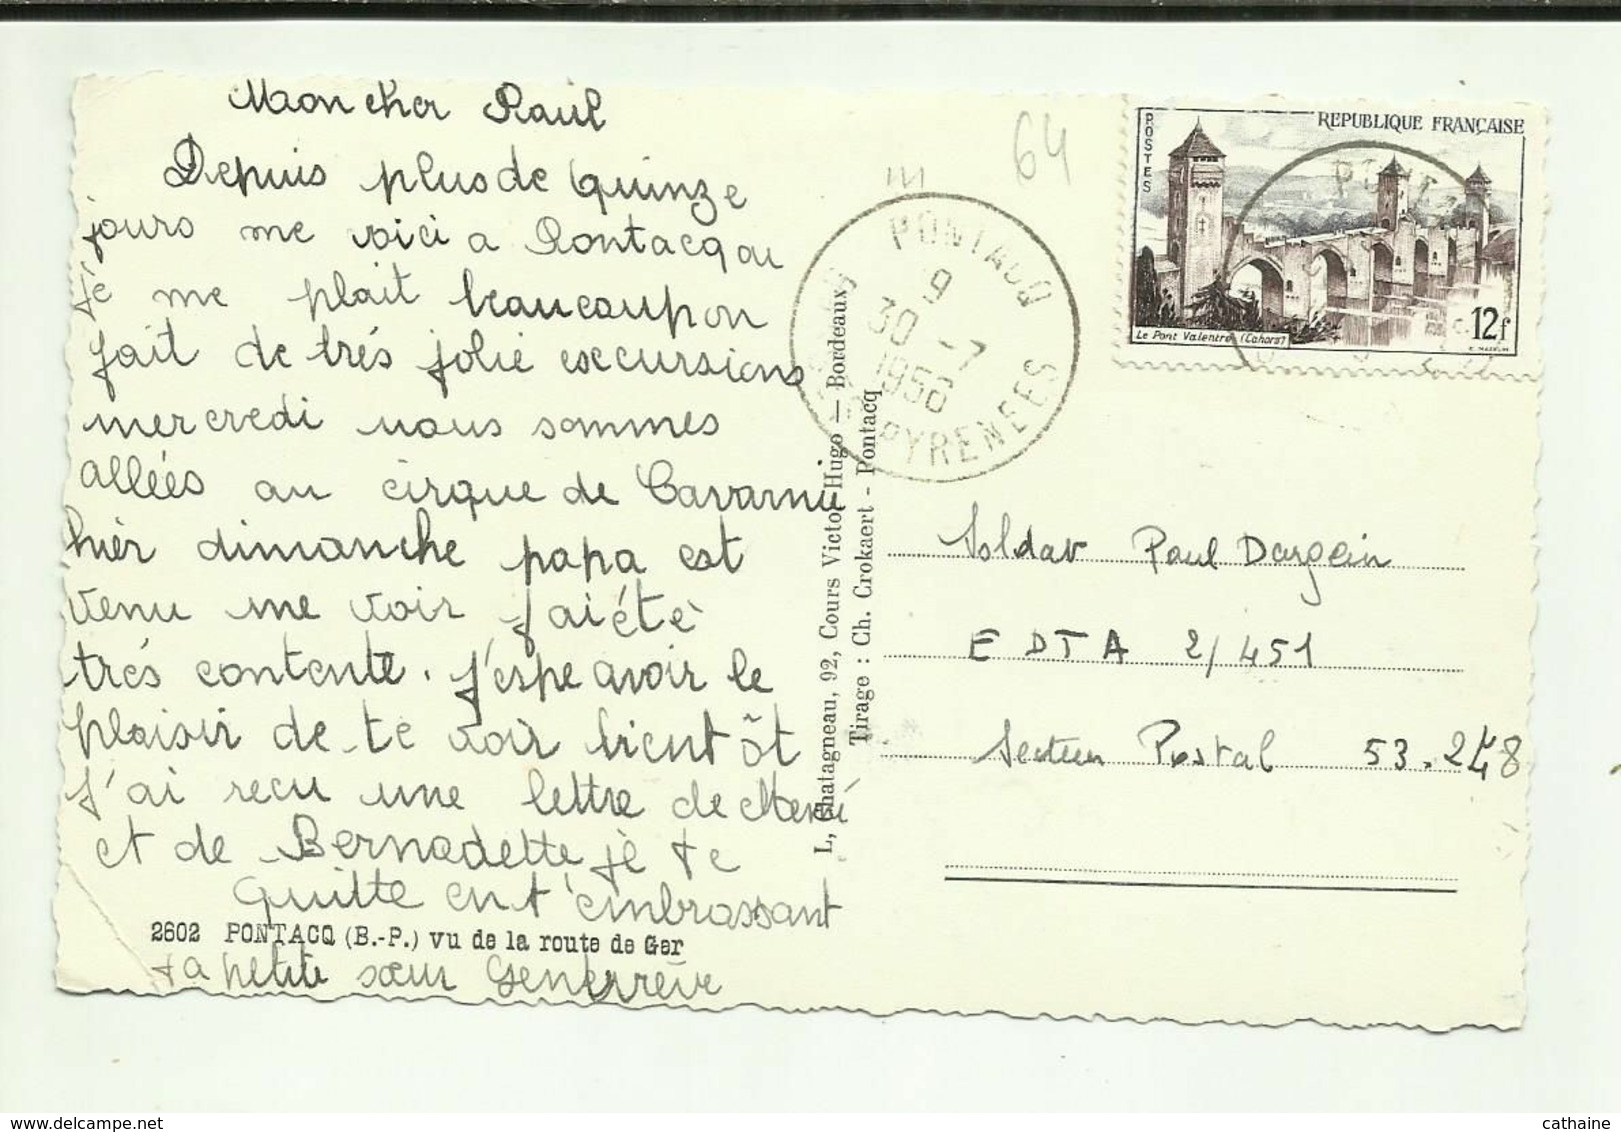 Mon cher Paul
Depuis plus de quinze
jours me voici a Pontacq ou
je me plait beaucoup on
fait de trés jolie excursions
mercredi nous sommes
allées au cirque de Gavarnie
hièr dimanche papa est
venu me voir j'ai étè
trés contente. j'espe avoir le
plaisir de te voir bientôt
J'ai recu une lettre de
et de Bernadette je te
quitte en t'embrassant
2602 PONTACQ (B.-P.) vu de la route de Ger
ta petite sœur Genevrève
L. Chatagneau, 92, Cours Victor Hugo — Bordeaux
Tirage : Ch. Crokaert - Pontacq
64
PONTACQ
9
30 -7
1956
PYRENEES
POSTES
REPUBLIQUE FRANÇAISE
PONT
Le Pont Valentré (Cahors)
12f
Soldat Paul Dargein
E D T A 2/451
Secteur Postal 53.248
cathaine